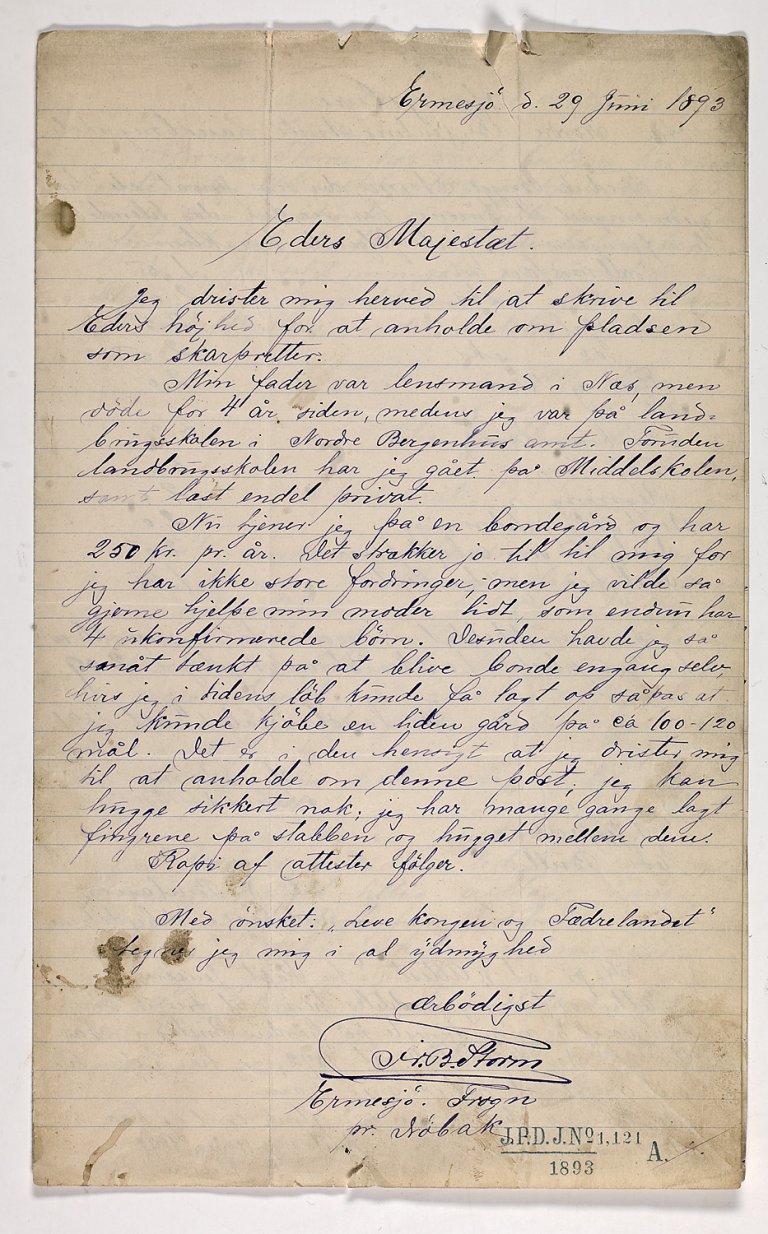 Ermesjö d. 29 Juni 1893
Eders Majestæt.
Jeg drister mig herved til at skrive til
Eders höjhed for at anholde om pladsen
som skarpretter.
Min fader var lensmand i Næs, men
döde for 4 år siden, medens jeg var på land-
brugsskolen i Nordre Bergenhus amt. Foruden
landbrugsskolen har jeg gået på Middelskolen,
samt læst endel privat.
Nu tjener jeg på en bondegård og har
250 kr. pr. år. Det strækker jo til til mig for
jeg har ikke store fordringer; men jeg vilde så
gjerne hjelpe min moder lidt som endnu har
4 ukonfirmerede börn. Desuden havde jeg så
småt tænkt på at blive bonde engang selv,
hvis jeg i tidens löb kunde få lagt op såpas at
jeg kunde kjöbe en liden gård på ca 100-120
mål. Det er i den hensigt at jeg drister mig
til at anholde om denne post; jeg kan
hugge sikkert nok; jeg har mange gange lagt
fingrene på stabben og hugget mellem dem.
Kopi af attester fölger.
Med önsket: „Leve kongen og Fædrelandet"
tegner jeg mig i al ydmyghed
ærbödigst
Fr. B. Storm
Ermesjö. Frogn
pr. Dröbak
J.P.D. J.No 1,121 A.
1893